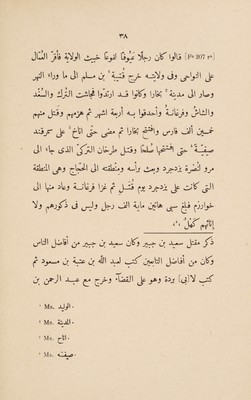 ٣٨
[Fº 207 rº] قالوا كان رجلًا نَبُوفًا انفوعا خبيث الولاية فأقرّ العُمّال
على النواحى وفى ولايتـه خرج قُتَيبة بن مسلم الى ما وراء النهر
وصار الى مدينة ² بخارا وكانوا قد ارتدّوا فجاشت التُرك والسُغد
والشاش وفرغانة وأحدقوا به أربعة اشهر ثم هزمهم وقتل منهم
خمسين ألف فارس وافتتح بخارا ثم مضى حتّى اناخ ³ على سمرقند
صيفيّة ⁴ حتى افتتحها صُلحًا وقتل طرخان التركىّ الذى جاء الى
مرو لنُصْرة يزدجرد وبعث برأسه ومنطقته الى الحجّاج وهى المنطقة
التى كانت على يزدجرد يوم قُتل ثم غزا فرغانة وعاد منها الى
خوارزم فبلغ سبى هاتين ماية الف رجل وليس فى ذكورهم ولا
إناثهم كَهْل
ذكر مقتل سعيد بن جبير وكان سعيد بن جبير من أفاضل الناس
وكان من أفاضل التابعين كتب لعبد اللّه بن عتبة بن مسعود ثم
كتب لأبى بردة وهو على القضاء وخرج مع عبد الرحمن بن
¹ Ms. الوليد.
² Ms. المدينة.
³ Ms. اناح.
⁴ Ms. صيفنه.